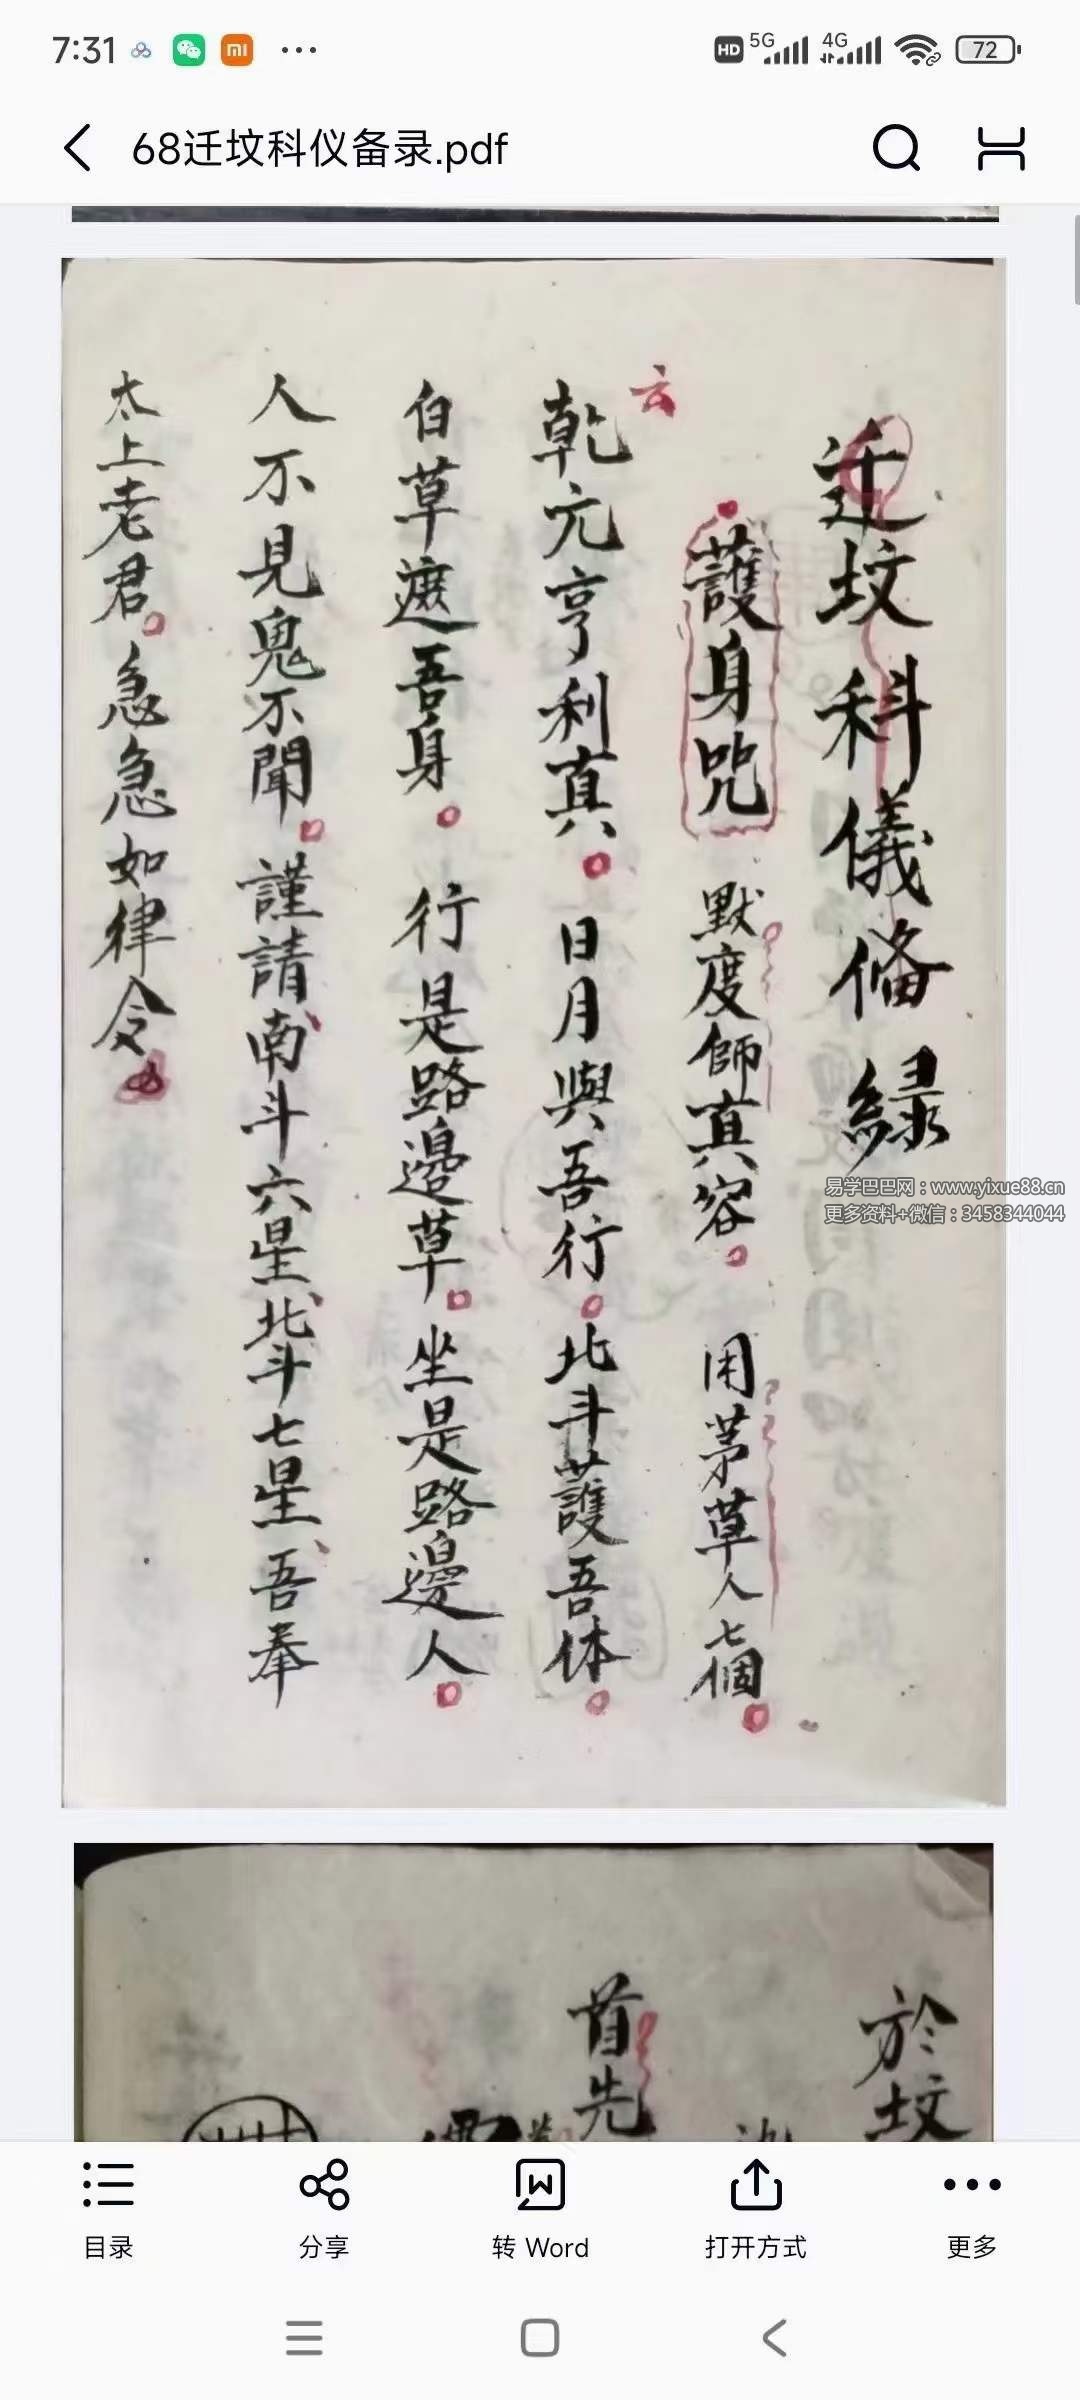 7:31
HD 5G 4G 72
68迁坟科仪备录.pdf
迁坟科儀俻録
護身咒 默度師真容 用茅草人七個
云
乾元亨利真 日月與吾行 北斗護吾体
白草遮吾身 行是路邊草 坐是路邊人
人不見鬼不聞 謹請南斗六星北斗七星 吾奉
太上老君 急急如律令
易学巴巴网：www.yixue88.cn
更多资料+微信：3458344044
於坟
首先
目录
分享
转 Word
打开方式
更多